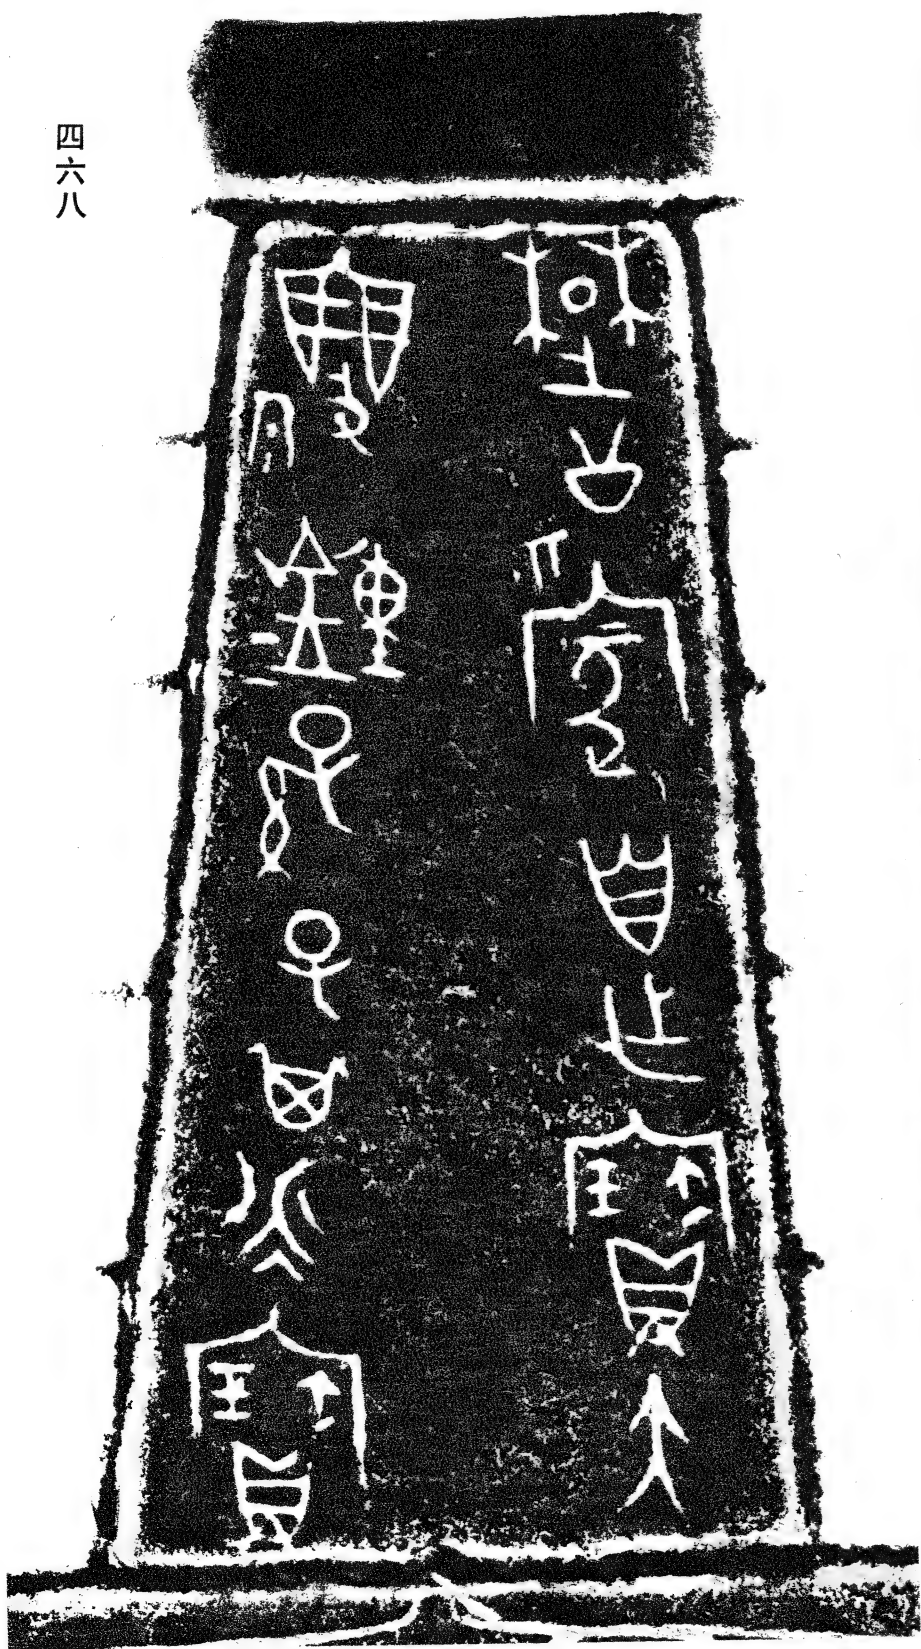 四六八
楚公豪自乍寶大
鐘孫子其永寶